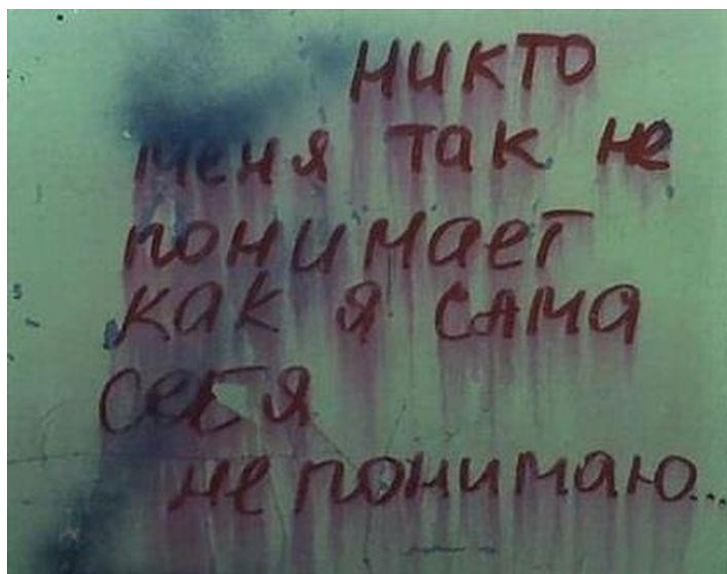 никто
меня так не
понимает
как я сама
себя
не понимаю...